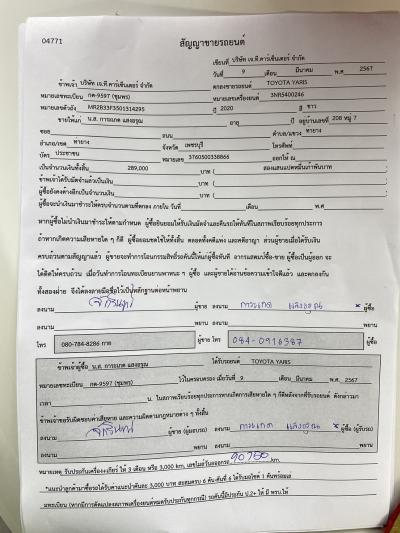 04771
สัญญาขายรถยนต์
เขียนที่ บริษัท เจ.ที.คาร์เซ็นเตอร์ จำกัด
วันที่ 9 เดือน มีนาคม พ.ศ 2567
ข้าพเจ้า บริษัท เจ.ที คาร์เซ็นเตอร์ จำกัด ตกลงขายรถยนต์ TOYOTA YARIS
หมายเลขทะเบียน กต-9597 (ชุมพร) หมายเลขเครื่องยนต์ 3NR5400246
หมายเลขตัวถัง MR2B33F3501314295 ปี 2020 สี ขาว
ขายให้แก่ น.ส. การะเกด แสงอรุณ อายุ ปี อยู่บ้านเลขที่ 208 หมู่ 7
ซอย ถนน ตำบล/แขวง ท่ายาง
อำเภอ/เขต ท่ายาง จังหวัด เพชรบุรี โทรศัพท์
บัตร ประชาชน หมายเลข 3760500338866 ออกให้ ณ
เป็นจำนวนเงินทั้งสิ้น 289,000 บาท ( สองแสนแปดหมื่นเก้าพันบาท
ข้าพเจ้าได้รับมัดจำแล้วเป็นเงิน บาท (
ผู้ซื้อยังคงค้างอีกเป็นจำนวนเงิน บาท (
ผู้ซื้อจะนำเงินมาชำระให้ครบจำนวนตามที่ตกลง ภายใน วันที่ เดือน พ.ศ
หากผู้ซื้อไม่นำเงินมาชำระให้ตามกำหนด ผู้ซื้อยินยอมให้รับเงินมัดจำและคืนรถให้ทันทีในสภาพเรียบร้อยทุกประการ
ถ้าหากเกิดความเสียหายใด ๆ ก็ดี ผู้ซื้อยอมชดใช้ให้ทั้งสิ้น ตลอดทั้งคดีแพ่ง และคดีอาญา ส่วนผู้ขายเมื่อได้รับเงิน
ครบถ้วนตามสัญญาแล้ว ผู้ขายจะทำการโอนกรรมสิทธิ์รถคันนี้ให้แก่ผู้ซื้อทันที อากรแสตมป์ซื้อ-ขาย ผู้ซื้อเป็นผู้ออก จะ
ได้ติดให้ครบถ้วน เมื่อวันทำการโอนทะเบียนยานพาหนะ ฯ ผู้ซื้อ และผู้ขายได้อ่านข้อความเข้าใจดีแล้ว และตกลงกัน
ทั้งสองฝ่าย จึงได้ลงลายมือชื่อไว้เป็นหลักฐานต่อหน้าพยาน
ลงนาม ผู้ขาย ลงนาม การะเกด แสงอรุณ * ผู้ซื้อ
ลงนาม พยาน ลงนาม พยาน
โทร 080-784-8286 กาย ผู้ขาย โทร 084-0916387 ผู้ซื้อ
ข้าพเจ้าผู้ซื้อ น.ส. การะเกด แสงอรุณ ได้รับรถยนต์ TOYOTA YARIS
หมายเลขทะเบียน กต-9597 (ชุมพร) ไว้ในครอบครอง เมื่อวันที่ 9 เดือน มีนาคม พ.ศ. 2567
เวลา น. ในสภาพเรียบร้อยทุกประการหากเกิดการเสียหายใด ๆ ก็ดีหลังจากที่รับรถยนต์ ดังกล่าวมา
ข้าพเจ้าขอรับผิดชอบค่าเสียหาย และความผิดตามกฎหมายต่าง ๆ ทั้งสิ้น
ลงนาม ผู้ขาย (ผู้มอบรถ) ลงนาม การะเกด แสงอรุณ * ผู้ซื้อ (ผู้รับรถ)
ลงนาม พยาน ลงนาม พยาน
หมายเหตุ รับประกันเครื่อง+เกียร์ ให้ 3 เดือน หรือ 3,000 km. เลขไมล์วันออกรถ 90750 km.
*แนะนำลูกค้ามาซื้อรถได้รับค่าแนะนำคันละ 3,000 บาท สะสมครบ 6 คัน-คันที่ 6 ได้รับ 1 คันพร้อม
ทะเบียน (หากมีการดัดแปลงสภาพเครื่องยนต์หมดรับประกันทุกกรณี) รถคันนี้มีประกัน ป.2+ ให้ มี พรบ.ให้